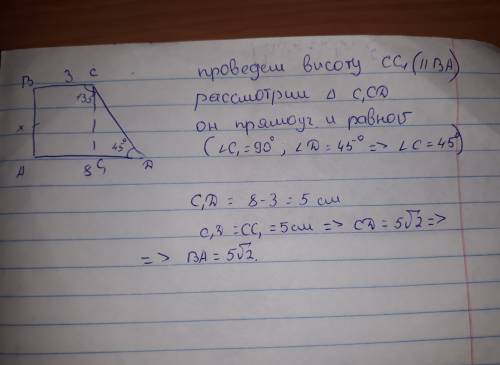 B 3 C
135
x
45°
A 8 C₁ D
проведем высоту CC₁ (||BA)
рассмотрим Δ C₁CD
он прямоуг. и равноб
(∠C₁ = 90°, ∠D = 45° => ∠C = 45°)
C₁D = 8 - 3 = 5 см
C₁D = CC₁ = 5 см => CD = 5√2 =>
=> BA = 5√2.